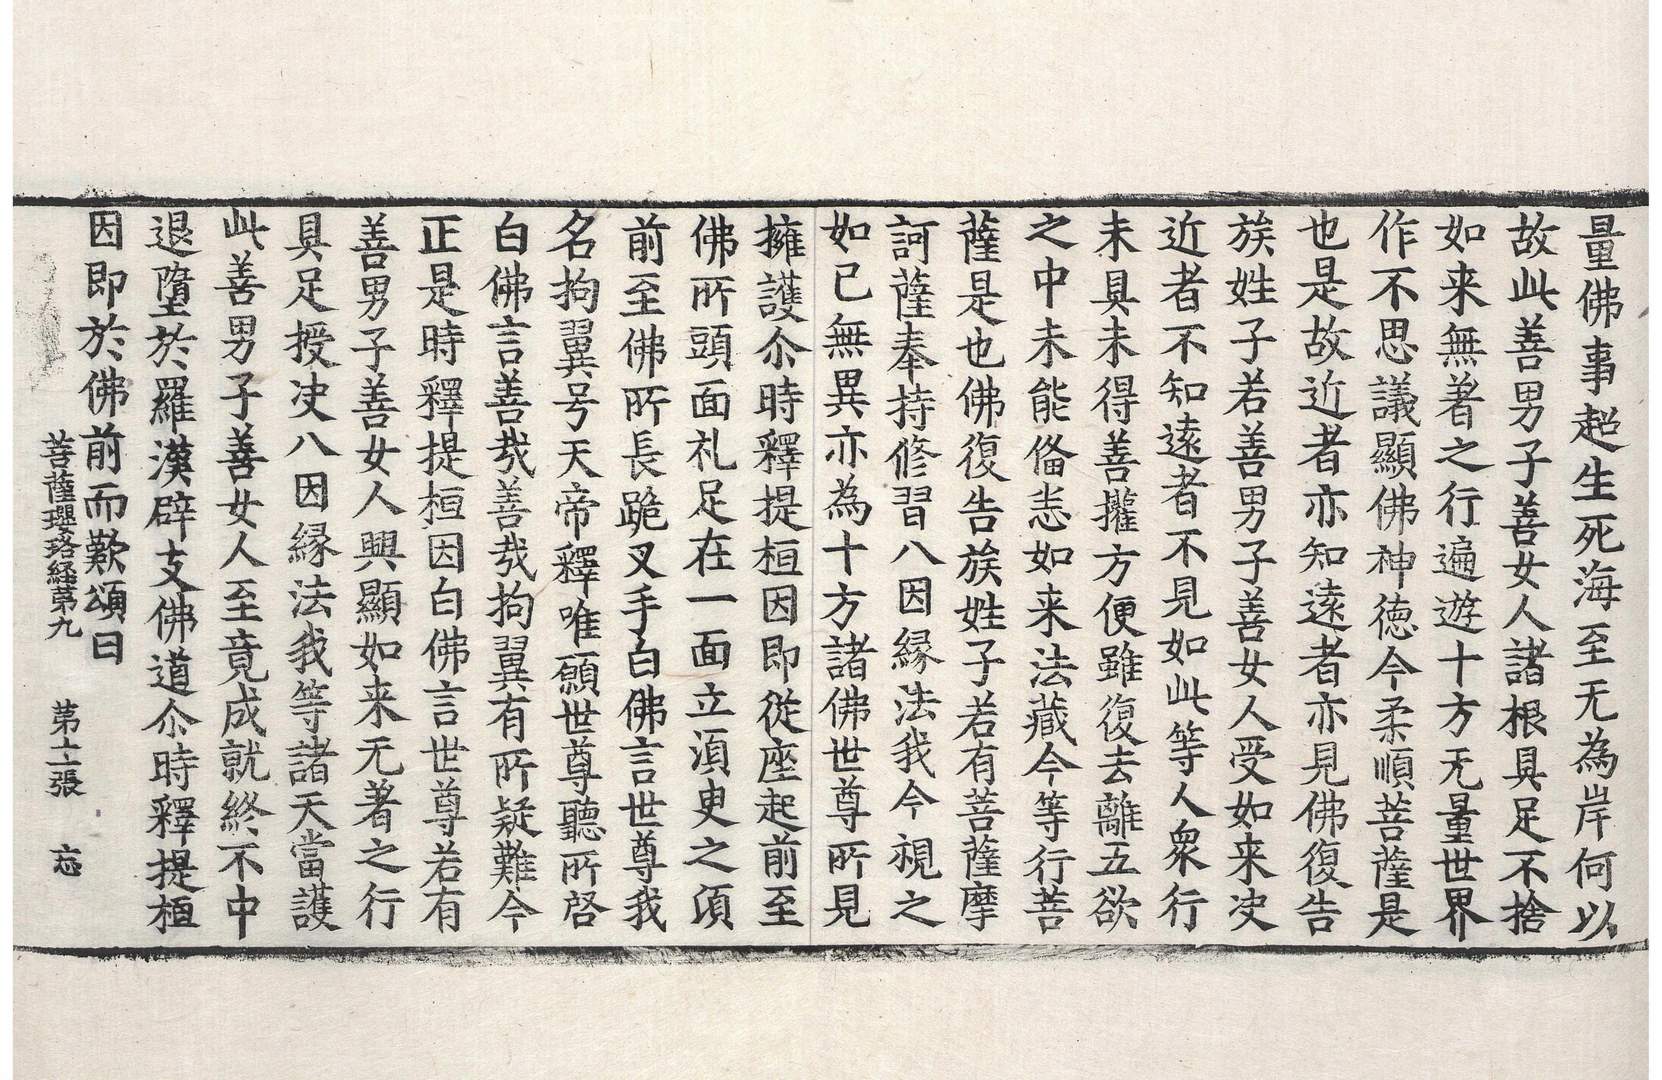 量佛事超生死海至无為岸何以
故此善男子善女人諸根具足不捨
如来無著之行遍遊十方无量世界
作不思議顯佛神德今柔順菩薩是
也是故近者亦知遠者亦見佛復告
族姓子若善男子善女人受如来决
近者不知遠者不見如此等人衆行
未具未得善權方便雖復去離五欲
之中未能俻悉如来法藏今等行菩
薩是也佛復告族姓子若有菩薩摩
訶薩奉持修習八因緣法我今視之
如已無異亦為十方諸佛世尊所見
擁護尒時釋提桓因即從座起前至
佛所頭面礼足在一面立湏臾之湏
前至佛所長跪叉手白佛言世尊我
名拘翼号天帝釋唯願世尊聽所啓
白佛言善㢤善㢤拘翼有所疑難今
正是時釋提桓因白佛言世尊若有
善男子善女人興顯如来无著之行
具足授决八因緣法我等諸天當護
此善男子善女人至竟成就終不中
退墮於羅漢辟支佛道尒時釋提桓
因即於佛前而歎頌曰
菩薩瓔珞経第九 第十二張 忘